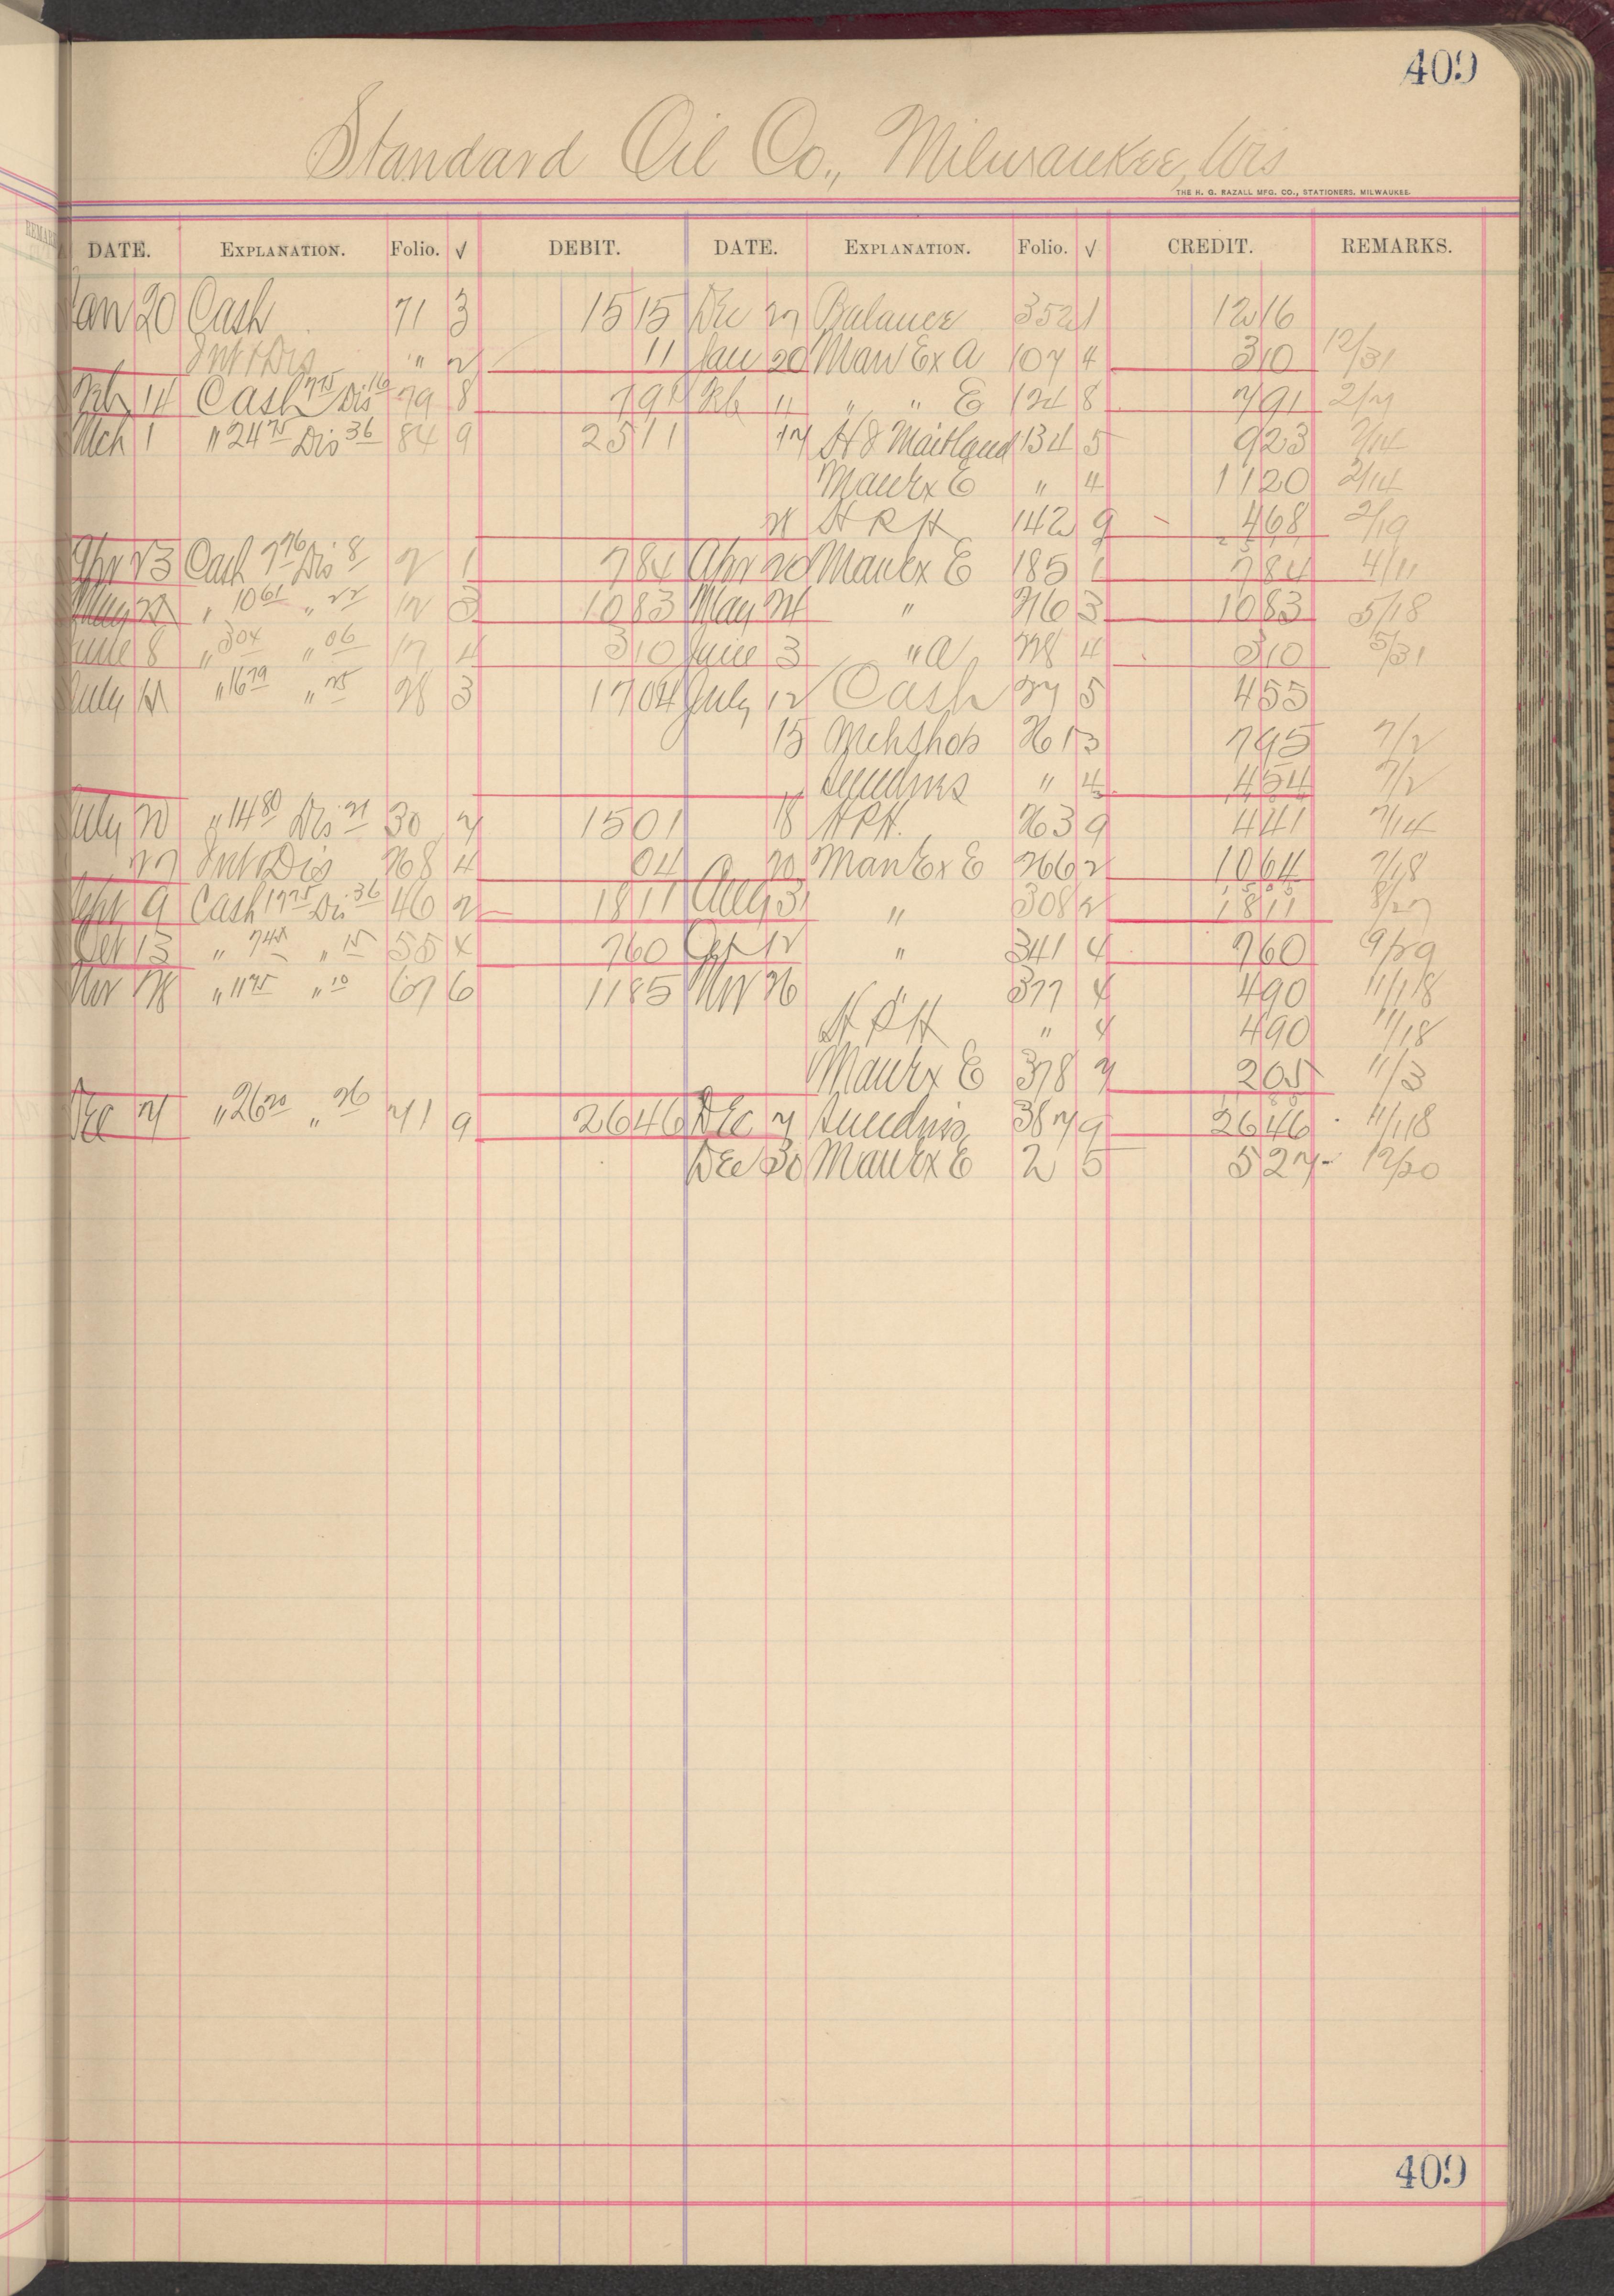 409
Standard Oil Co., Milwaukee, Wis
THE H. G. RAZALL MFG. CO., STATIONERS, MILWAUKEE.
DATE. EXPLANATION. Folio. √ DEBIT. DATE. EXPLANATION. Folio. √ CREDIT. REMARKS.
Jan 20 Cash 71 3 15 15 Dec 27 Balance 352 1 12 16
Int & Dis " 2 11 Jan 20 Man Ex A 107 4 3 10 12/31
Feb 14 Cash 7 75 Dis 16 79 8 7 91 Feb 11 " " E 124 8 7 91 2/7
Mch 1 " 24 75 Dis 36 84 9 25 11 17 H & Maitland 134 5 9 23 2/14
Man Ex E " 4 11 20 2/14
21 H R H 142 9 4 68 2/19
Apr 23 Cash 7 76 Dis 8 2 1 7 84 Apr 20 Man Ex E 185 1 7 84 4/11
May " 10 61 " 22 12 3 10 83 May 24 " 216 3 10 83 5/18
June 8 " 3 04 " 06 17 4 3 10 June 3 " A 228 4 3 10 5/31
July " 16 79 " 25 28 3 17 04 July 12 Cash 27 5 4 55
15 Mch Shop 261 3 7 95 7/2
Sundries " 4 4 54 7/2
July 20 " 14 80 Dis 21 30 2 15 01 18 H R H. 263 9 4 41 7/14
27 Int & Dis 268 4 04 20 Man Ex E 266 2 10 64 7/18
Sept 9 Cash 17 75 Dis 36 46 2 18 11 Aug 31 " 308 2 18 11 8/27
Oct 13 " 7 45 " 15 55 4 7 60 Oct 12 " 341 4 7 60 9/29
Nov 28 " 11 75 " 10 67 6 11 85 Nov 26 " 377 4 4 90 11/18
H R H " 4 4 90 11/18
Man Ex E 378 7 2 05 11/3
Dec 21 " 26 20 " 26 71 9 26 46 Dec 7 Sundries 387 9 26 46 11/18
Dec 30 Man Ex E 2 5 5 27 12/20
409